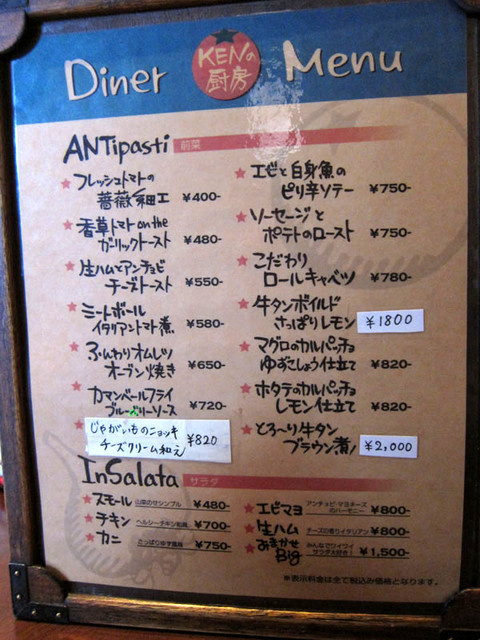 Diner
KENの
厨房
Menu
ANTipasti 前菜
フレッシュトマトの
薔薇細工 ¥400-
香草トマト on the
ガーリックトースト ¥480-
生ハムとアンチョビ
チーズトースト ¥550-
ミートボール
イタリアントマト煮 ¥580-
ふんわりオムレツ
オーブン焼き ¥650-
カマンベールフライ
ブルーベリーソース ¥720-
じゃがいものニョッキ
チーズクリーム和え ¥820
エビと白身魚の
ピリ辛ソテー ¥750-
ソーセージと
ポテトのロースト ¥750-
こだわり
ロールキャベツ ¥780-
牛タンボイルド
さっぱりレモン ¥1800
マグロのカルパッチョ
ゆずこしょう仕立て ¥820-
ホタテのカルパッチョ
レモン仕立て ¥820-
とろ〜り牛タン
ブラウン煮 ¥2,000
InSalata サラダ
スモール ¥480-
チキン ヘルシーチキン和風 ¥700-
カニ ¥750-
エビマヨ アンチョビ・マヨネーズ
のハーモニー ¥800-
生ハム チーズの香りイタリアン ¥800-
おまかせ
Big みんなでワイワイ
サラダ大好き! ¥1,500-
※表示料金は全て税込み価格となります。